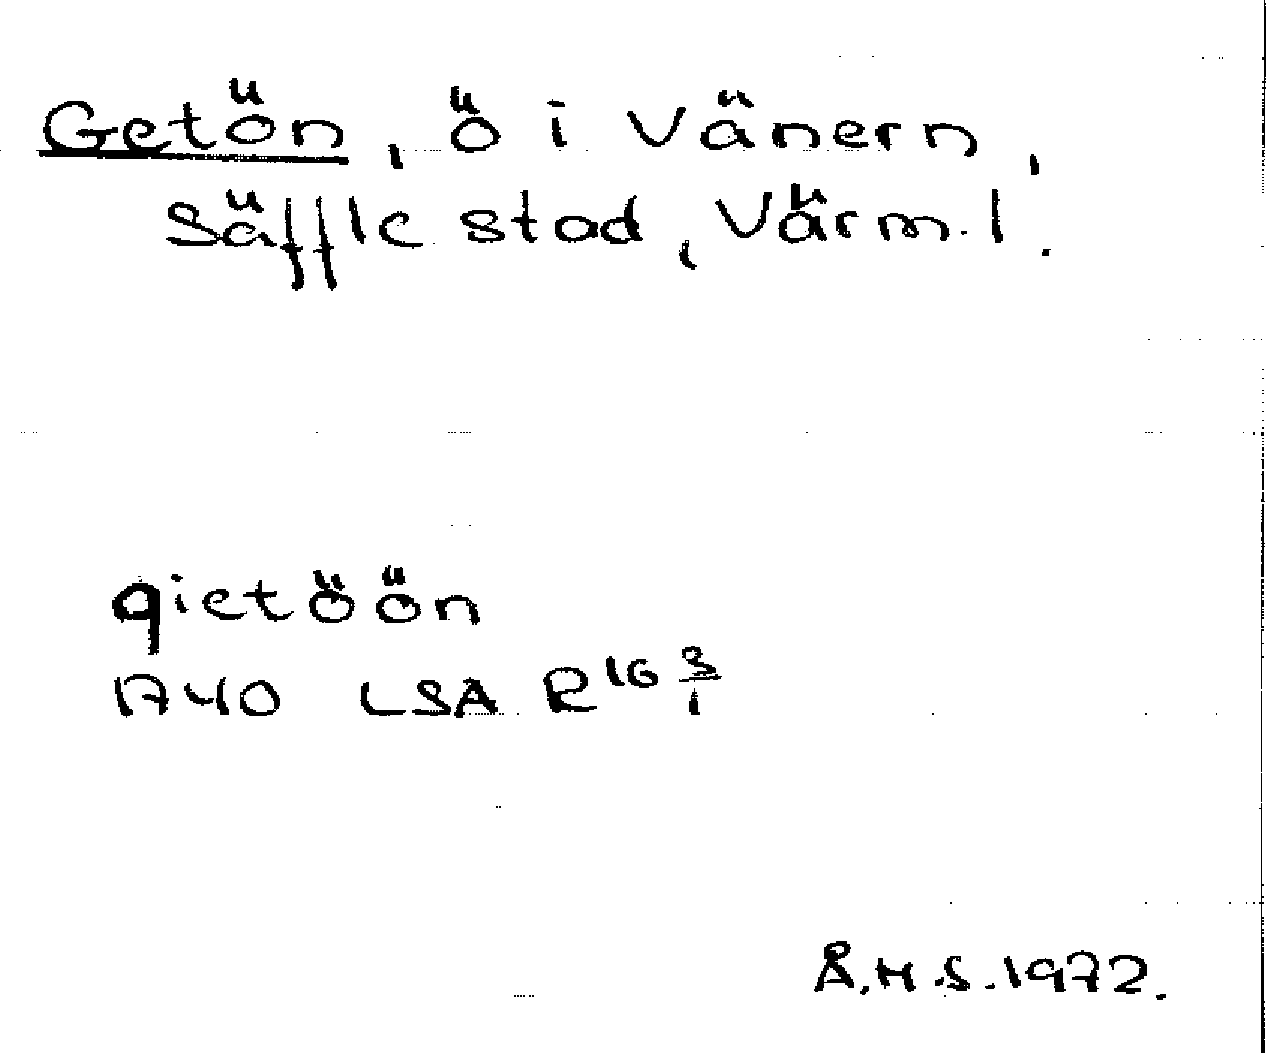 Getön, ö i Vänern,
Säffle stad, Värml.
gietöön
1740 LSA R16 3/1
Å.H.S.1972.